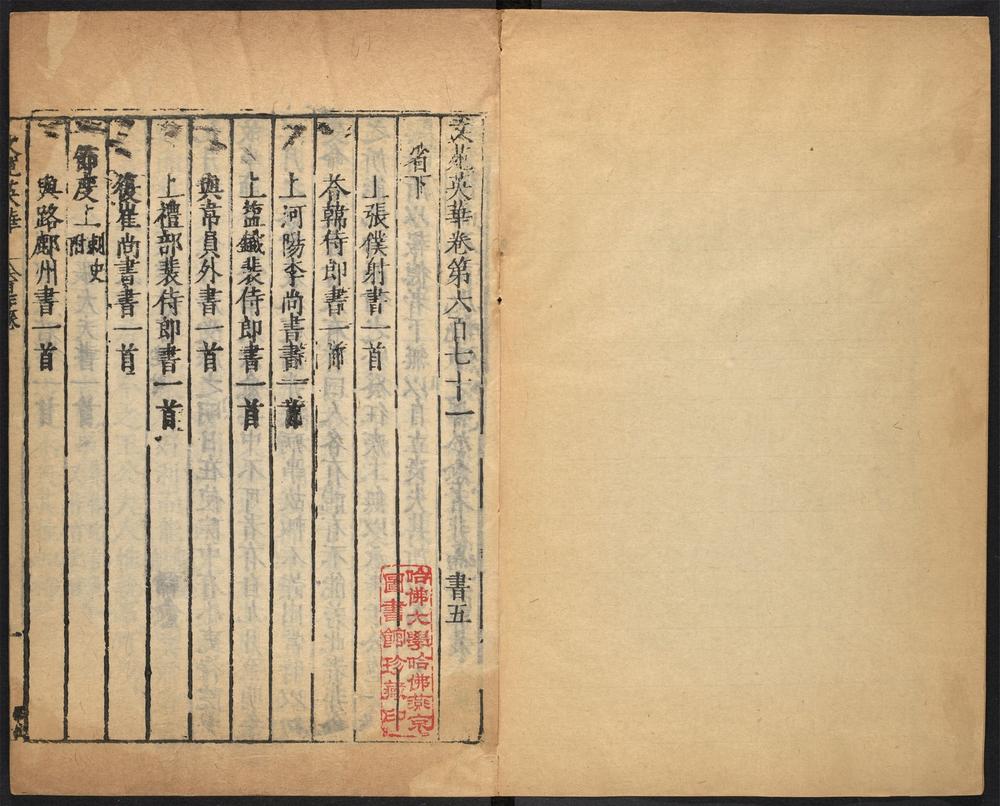 文苑英華卷第六百七十二 書五
省下
上張僕射書一首
荅韓侍郎書一首
上河陽李尚書書一首
上鹽鐵裴侍郎書一首
與韋員外書一首
上禮部裴侍郎書一首
復崔尚書書一首
節度上刺史附
與路鄜州書一首
文苑英華
哈佛大學哈佛燕京
圖書館珍藏印